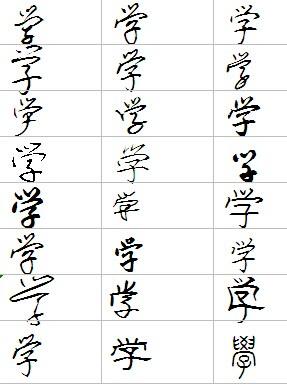 学 学 学
学 学 学
学 学 学
学 学 学
学 学 学
学 学 学
学 学 学
学 学 學